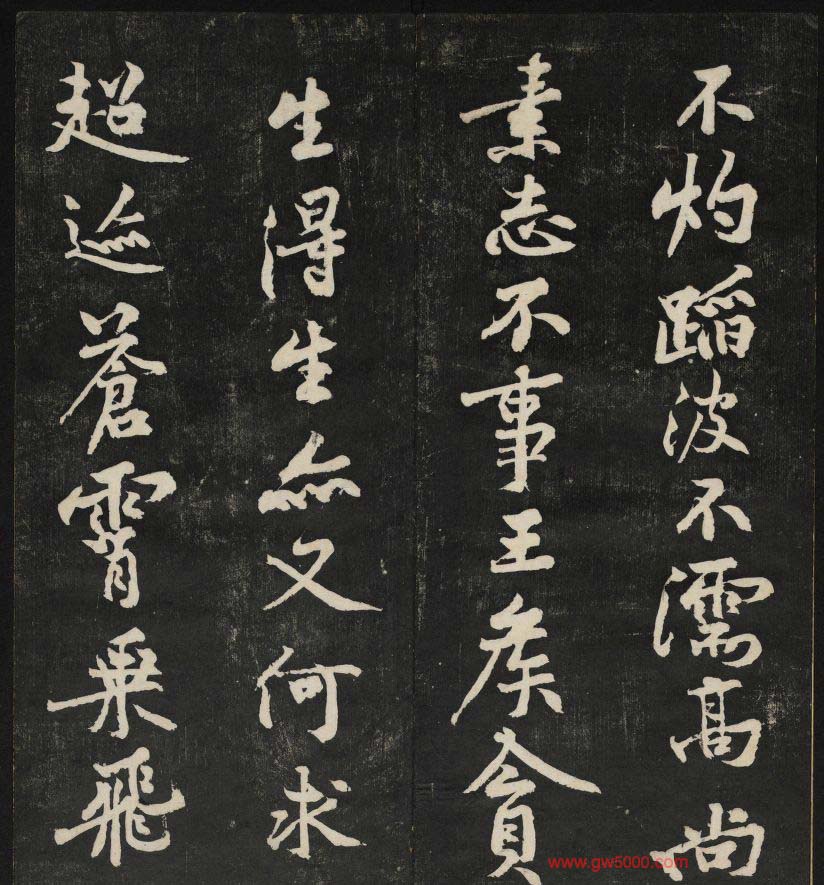 不灼蹈波不濡高尚
素志不事王矦貪
生得生亦又何求
超迹蒼霄乗飛
www.gw5000.com